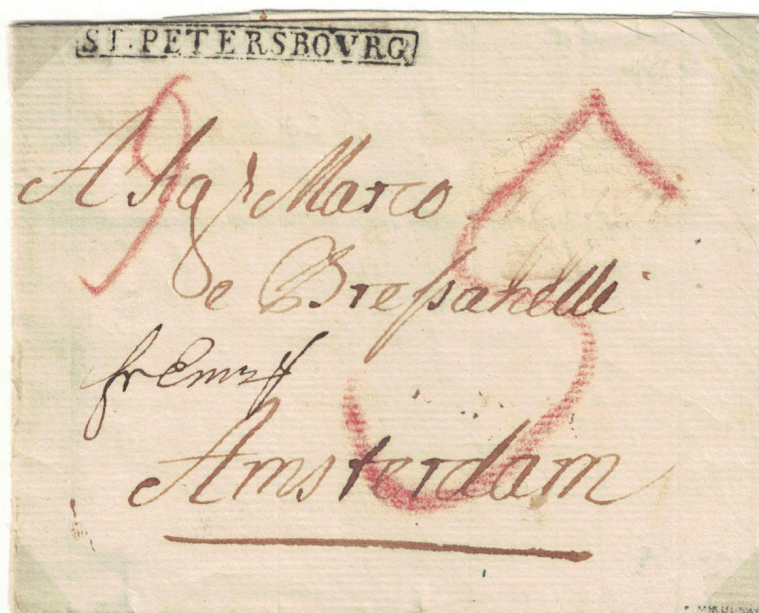 ST. PETERSBOVRG
9
A Sigr Marco
e Bressanelli
Amsterdam